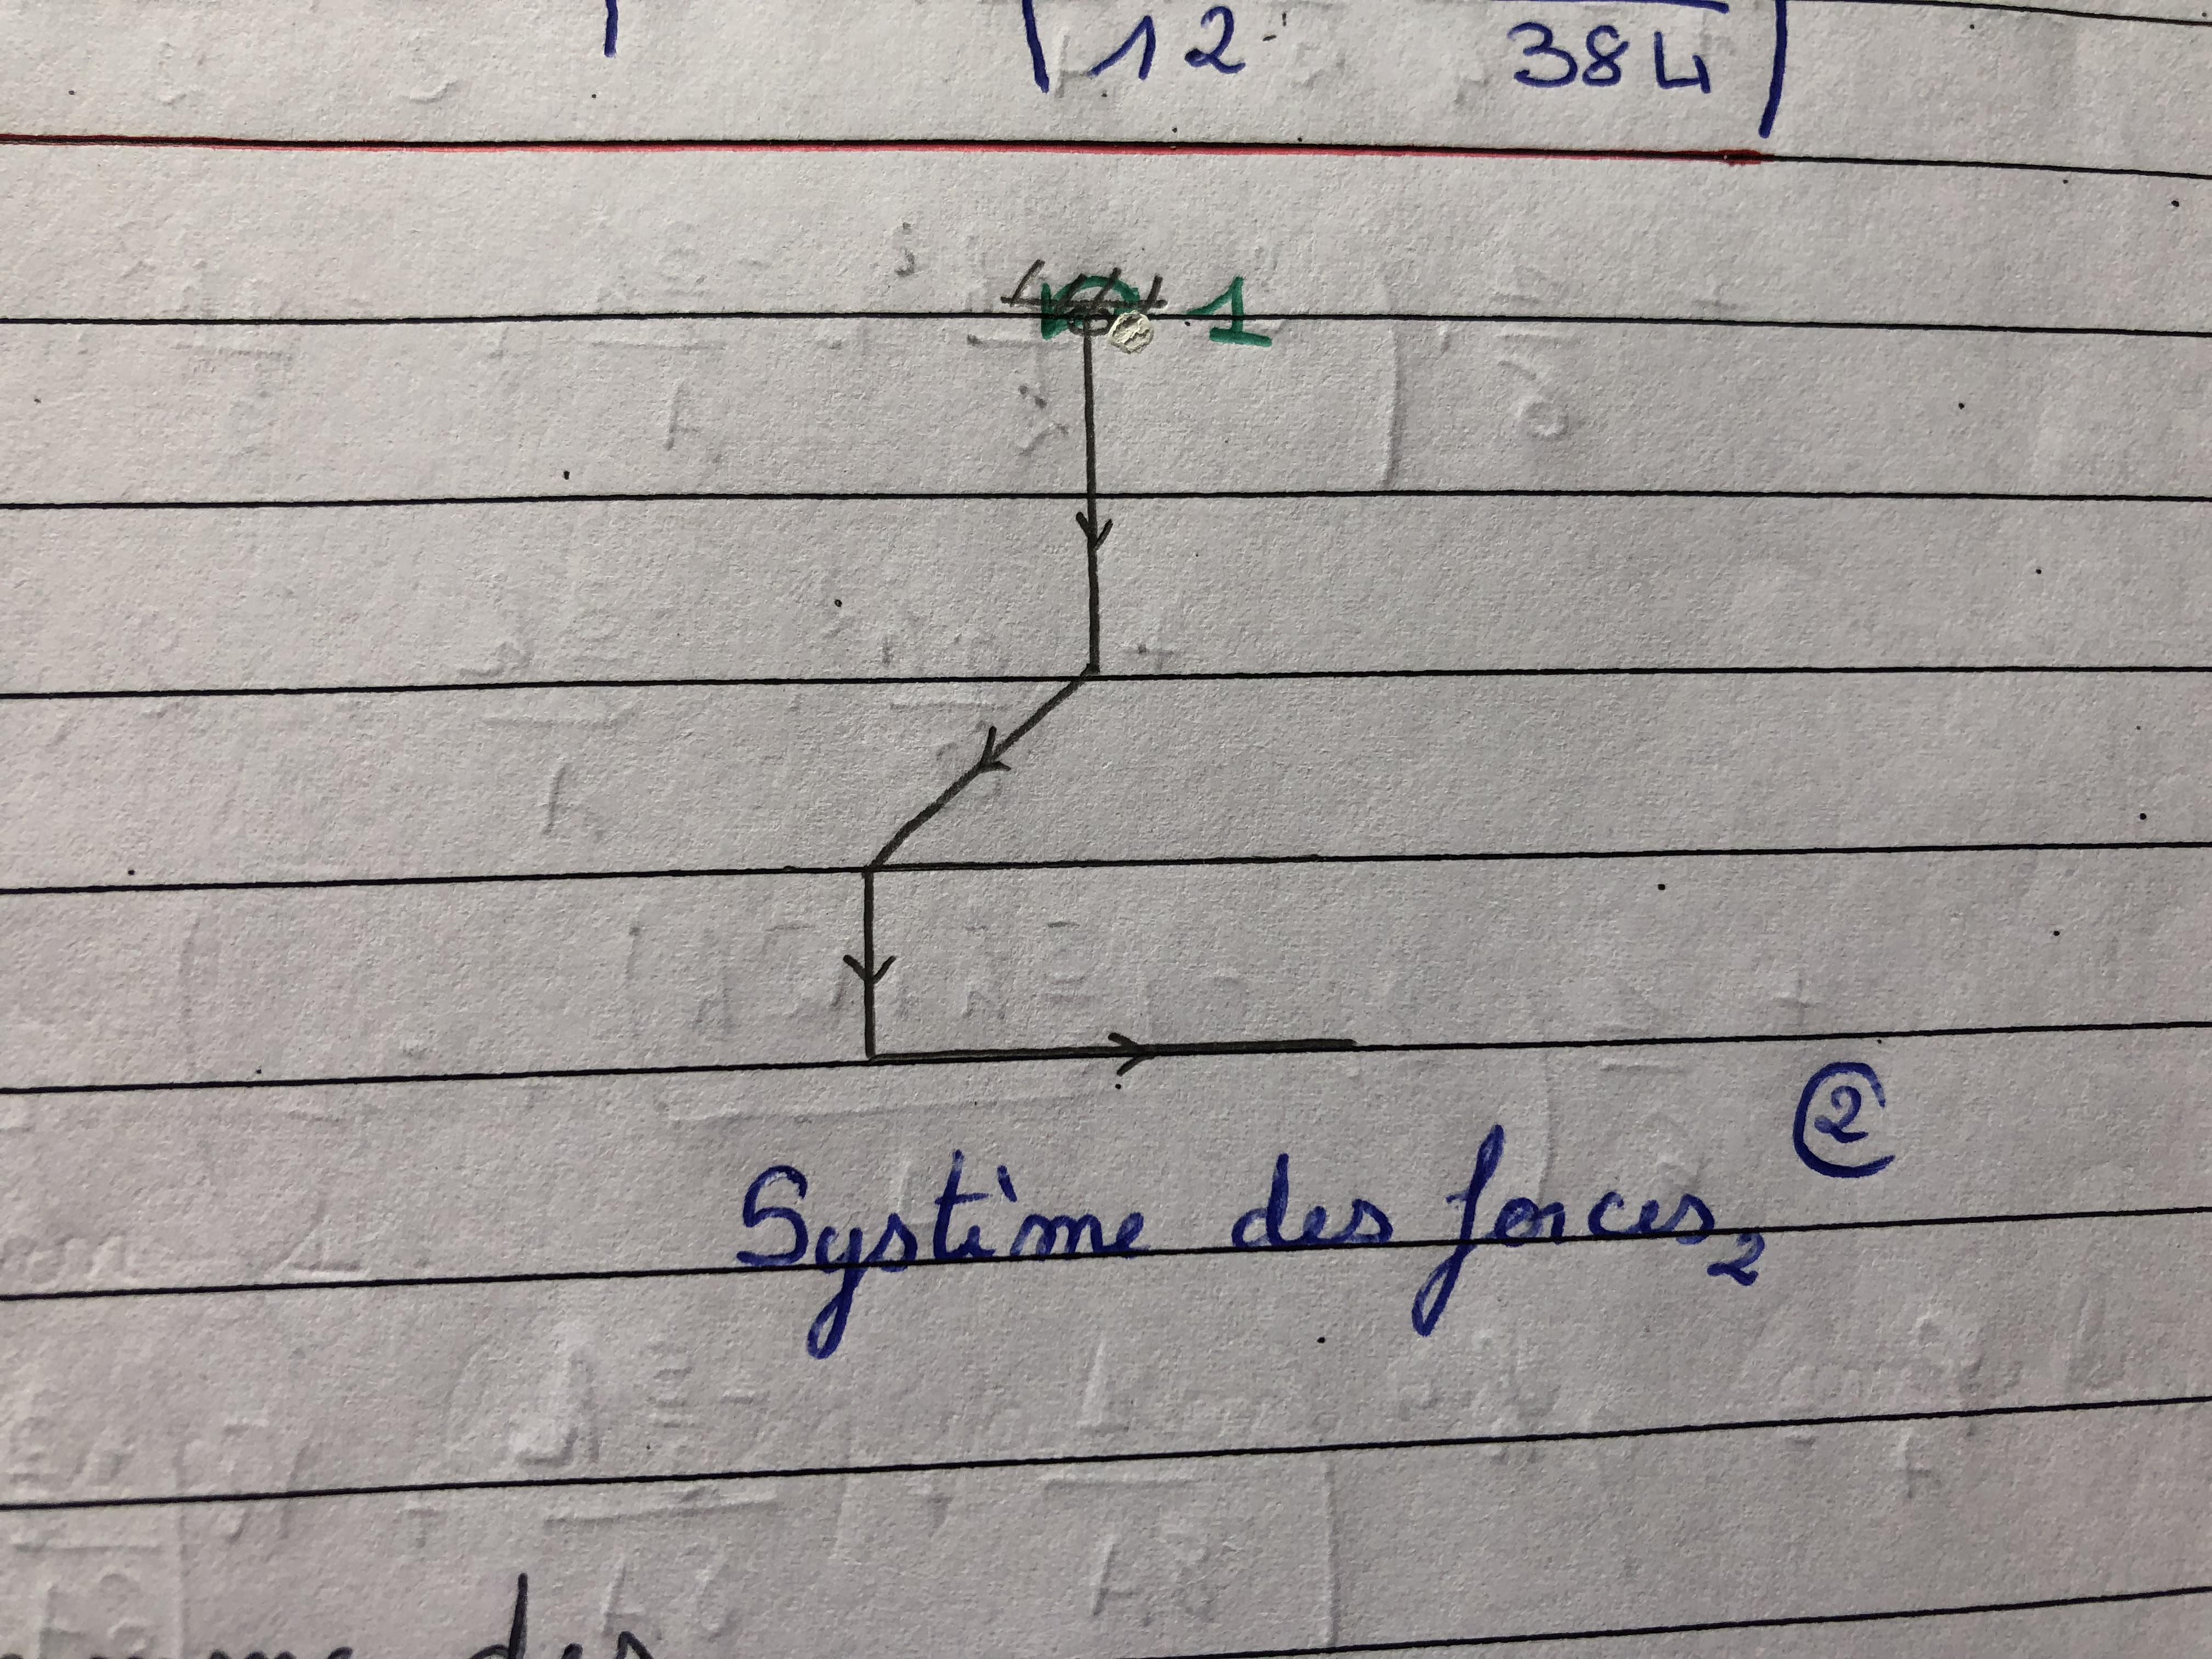 (12 384)
1
②
Système des forces₂